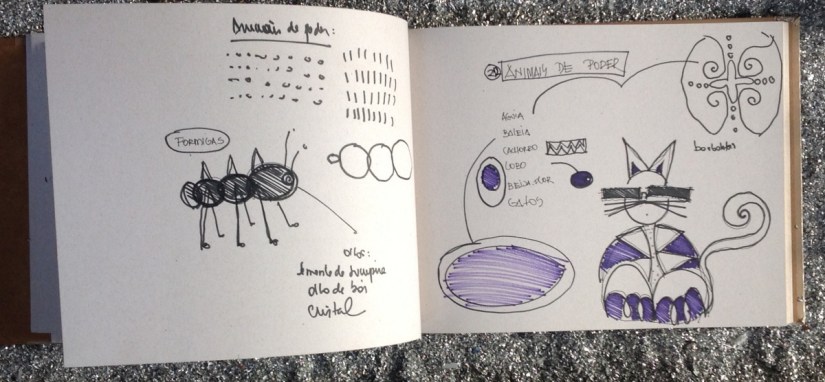 Animais de poder:
FORMIGAS
olho:
semente de
olho de boi
cristal
ANIMAIS DE PODER
ÁGUIA
BALEIA
CACHORRO
LOBO
BEIJA-FLOR
GATOS
borboletas